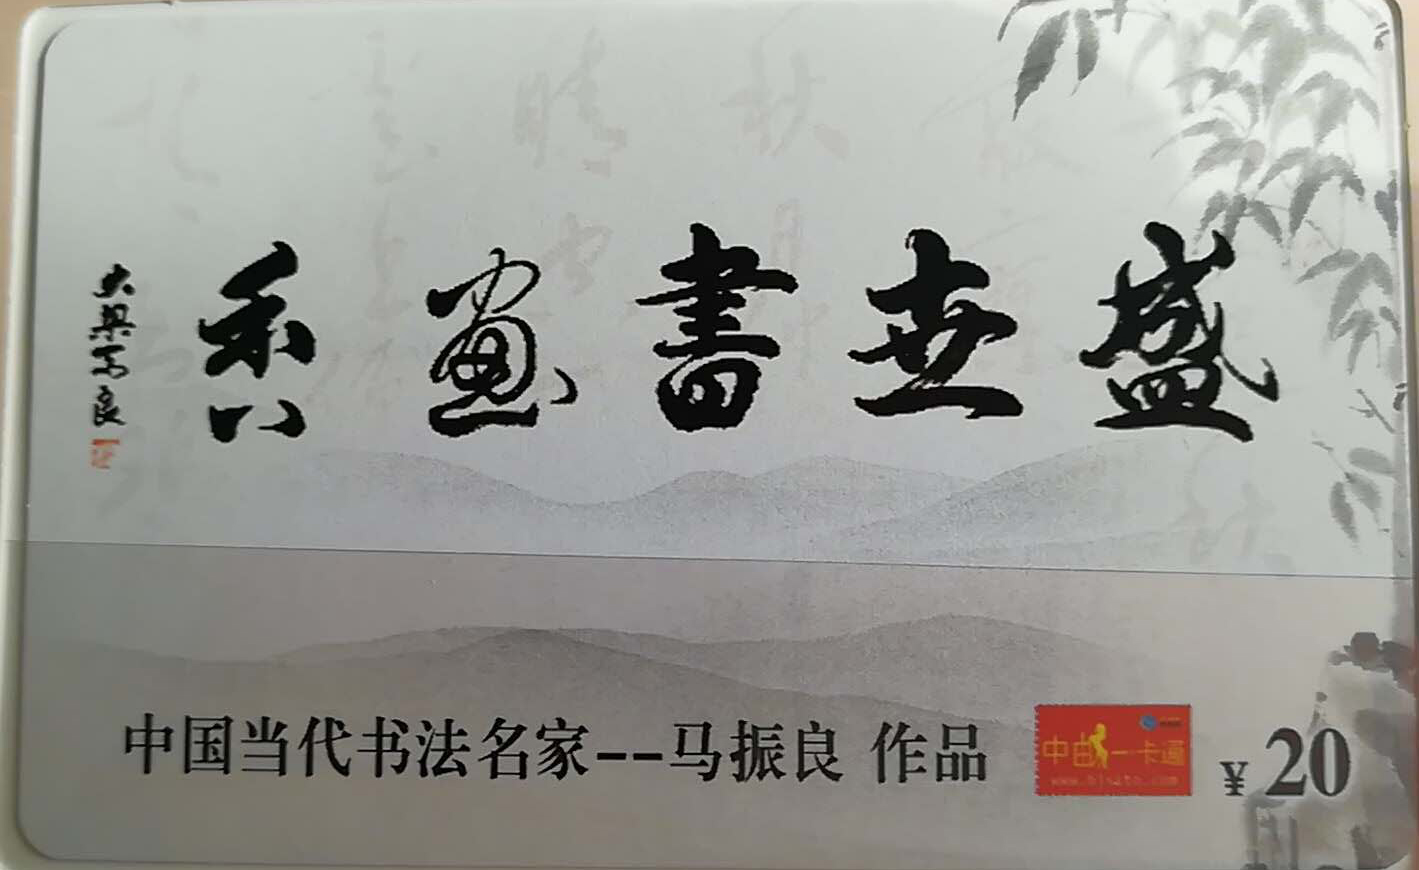 盛世書畫香
大梁馬良
中国当代书法名家--马振良 作品
中由一卡通
¥ 20